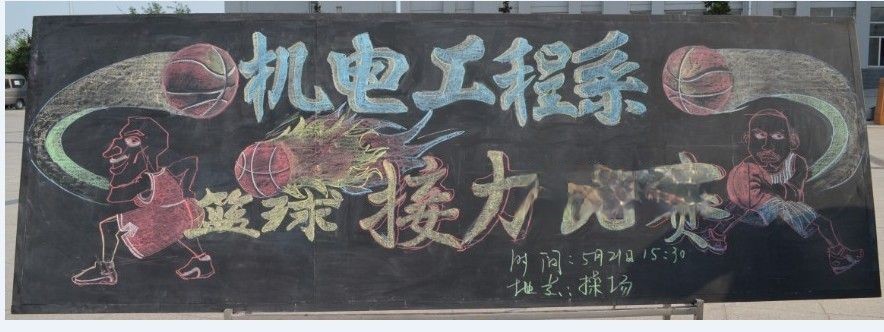 机电工程系
篮球接力
时间:5月21日 15:30
地点:操场